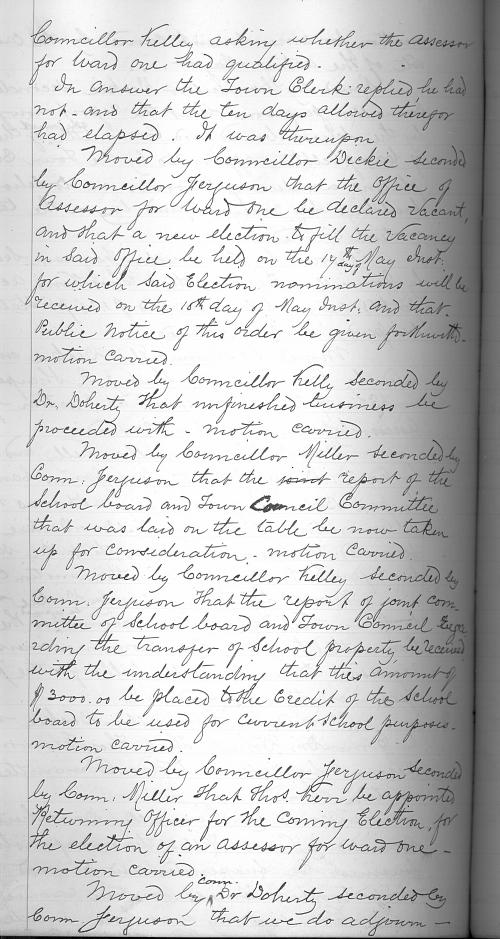 Councillor Kelley asking whether the assessor
for Ward one had qualified.
In answer the Town Clerk replied he had
not - and that the ten days allowed therefor
had elapsed. It was thereupon
Moved by Councillor Dickie seconded
by Councillor Ferguson that the Office of
Assessor for Ward one be declared Vacant,
and that a new election to fill the Vacancy
in said Office be held on the 17th day of May Inst.
for which said Election nominations will be
received on the 10th day of May Inst. and that
Public Notice of this order be given forthwith -
motion carried.
Moved by Councillor Kelly seconded by
Dr. Doherty that unfineshed business be
proceeded with - motion carried.
Moved by Councillor Miller seconded by
Coun. Ferguson that the joint report of the
School board and Town Council Committee
that was laid on the table be now taken
up for consideration - motion carried.
Moved by Councillor Kelley seconded by
Coun. Ferguson that the report of joint com-
mittee of School board and Town Council rega
rding the transfer of School property be received
with the understanding that this amount of
$3000.00 be placed to the Credit of the School
board to be used for current School purposes -
motion carried.
Moved by Councillor Ferguson seconded
by Coun. Miller that Thos. be appointed
Returning Officer for the Coming Election, for
the election of an assessor for ward one -
motion carried.
Moved by Coun. Dr Doherty seconded by
Coun Ferguson that we do adjourn -